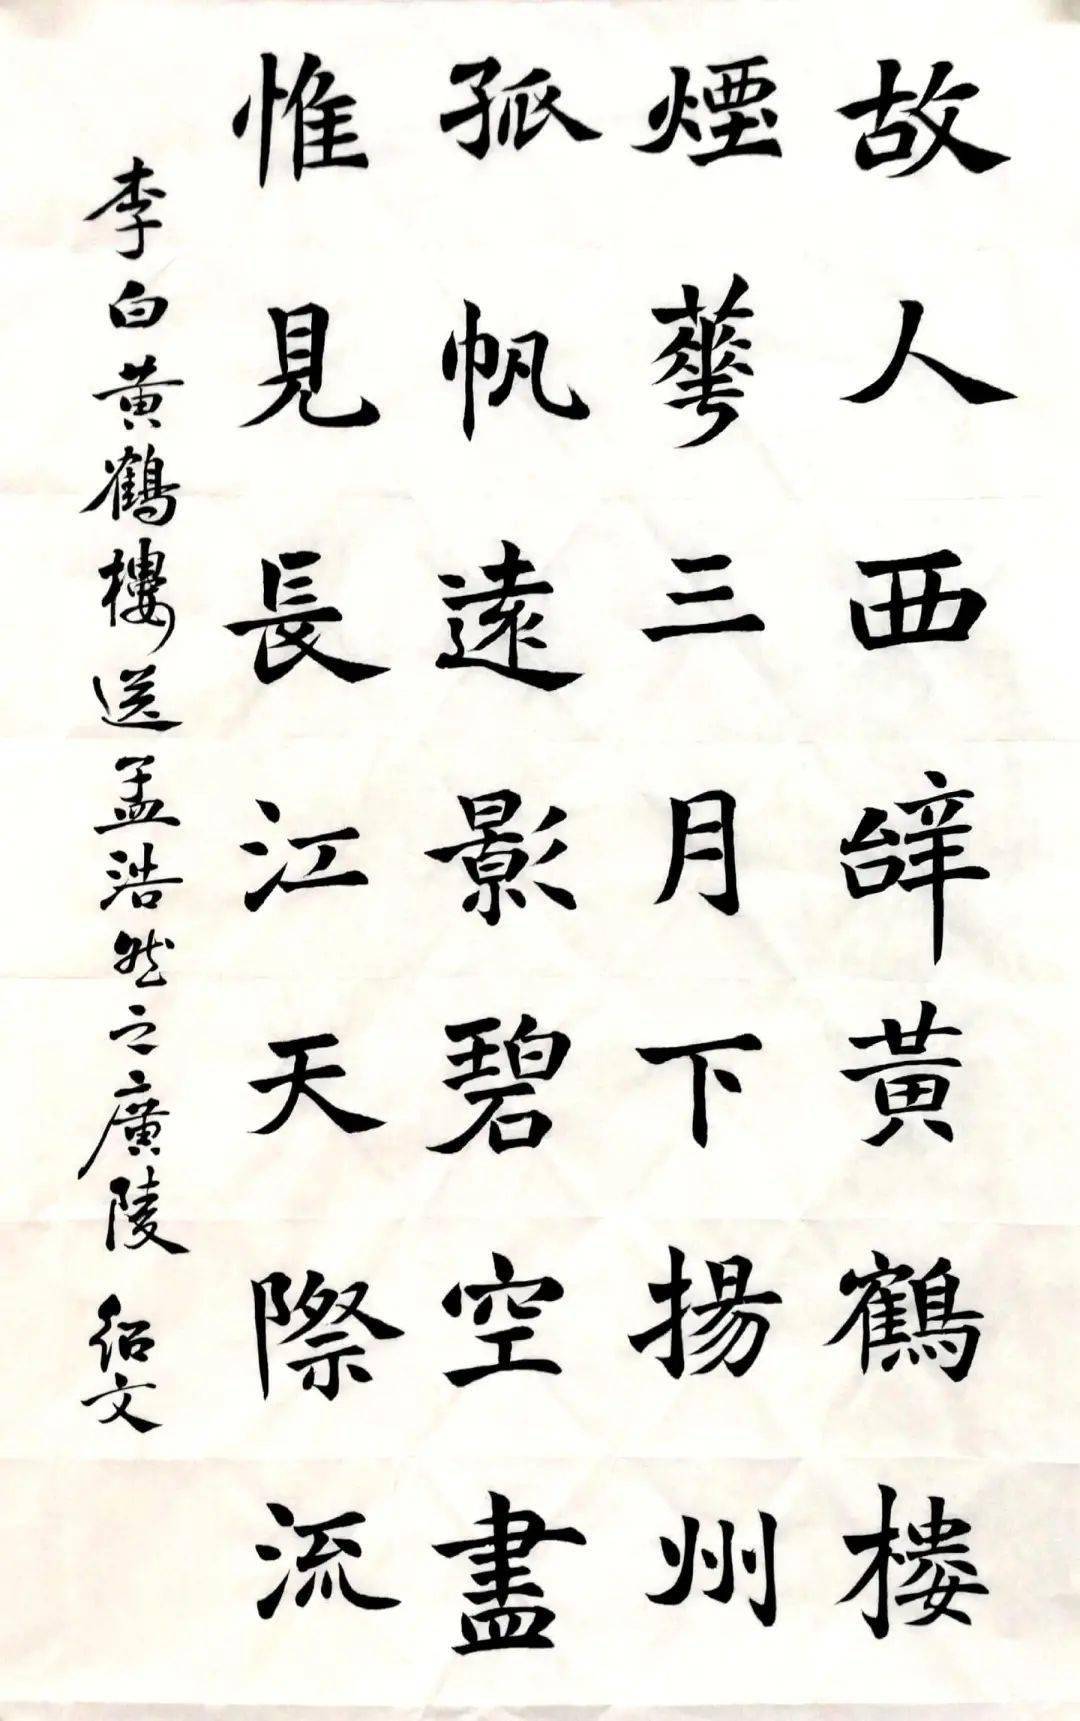 故人西辝黄鶴楼
煙華三月下揚州
孤帆遠影碧空盡
惟見長江天際流
李白黄鶴樓送孟浩然之廣陵 紹文